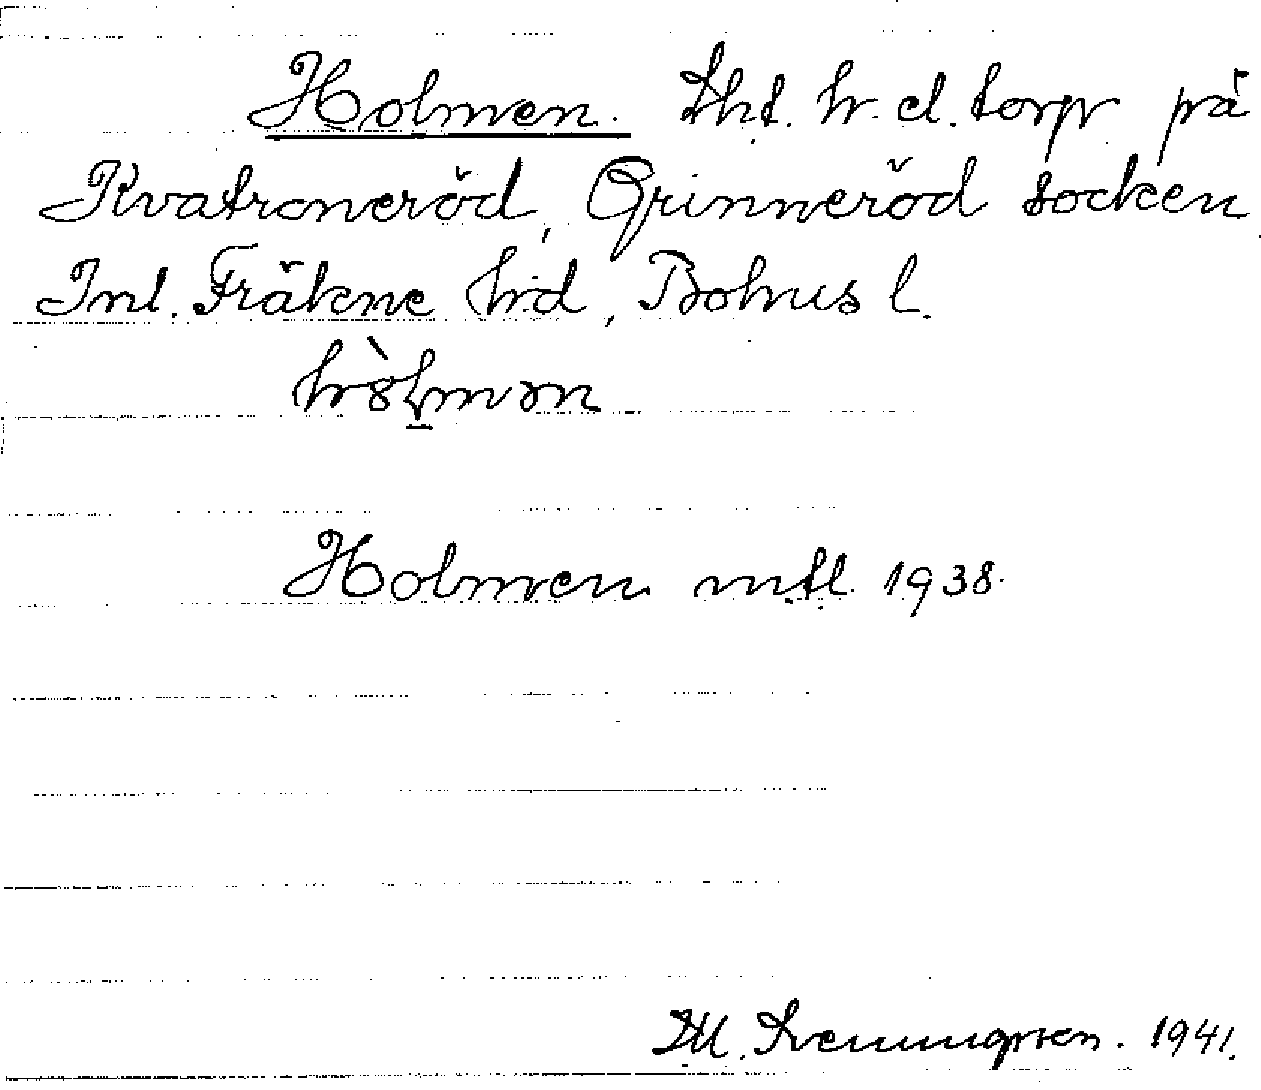 Holmen. Lht. h. el. torp på
Kvatroneröd, Grinneröd socken
Inl. Fräkne hd, Bohus l.
Holmen mtl 1938.
M. Svenungsson. 1941.